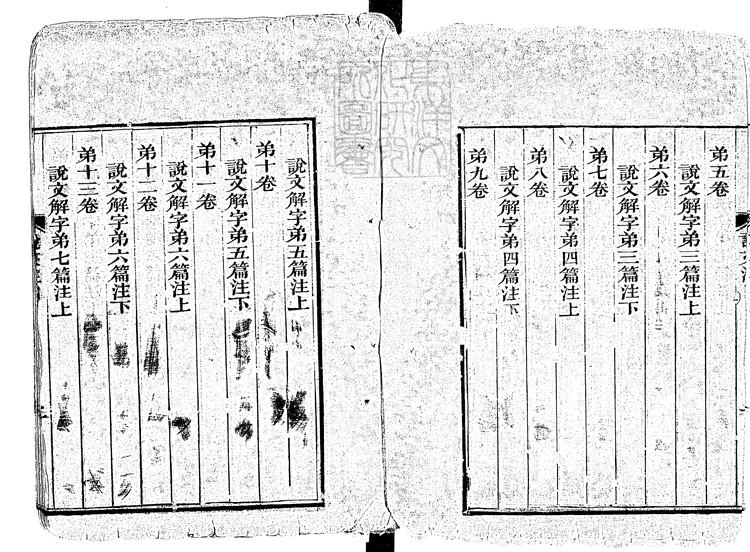 第五卷
說文解字弟三篇注上
弟六卷
說文解字弟三篇注下
弟七卷
說文解字弟四篇注上
弟八卷
說文解字弟四篇注下
弟九卷
說文解字弟五篇注上
弟十卷
說文解字弟五篇注下
弟十一卷
說文解字弟六篇注上
弟十二卷
說文解字弟六篇注下
弟十三卷
說文解字弟七篇注上